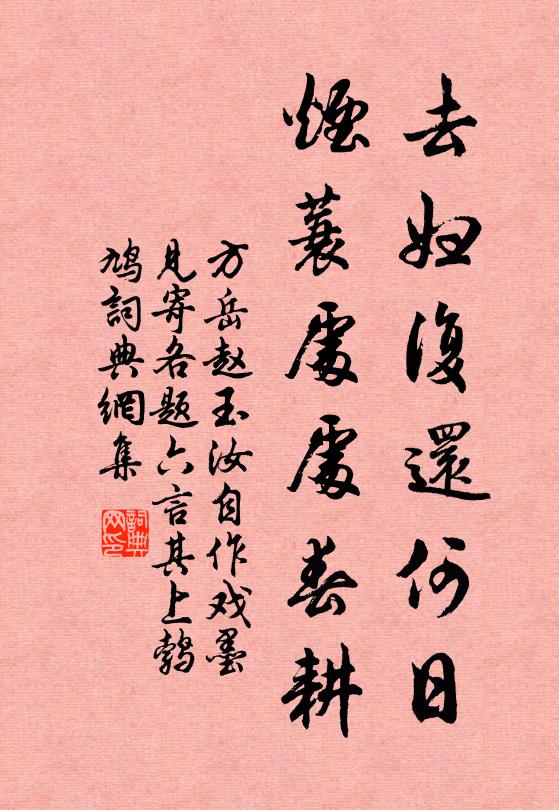 去妇復還何日
煙蓑處處春耕
方岳赵玉汝自作戏墨
见寄各題六言其上鹁
鸠詞典網集
詞典网印